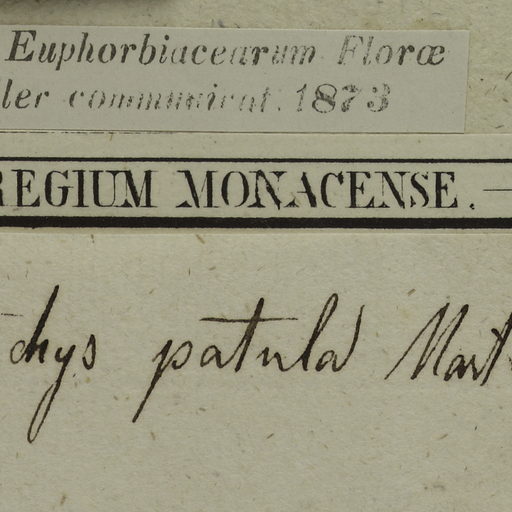 Euphorbiacearum Floræ
ller communicat. 1873
REGIUM MONACENSE.
chys patula Mart